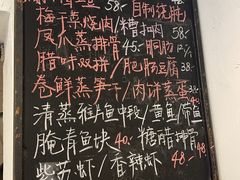 58.- 自制烧肫
梅干菜烧肉/糟扣肉 58.-
瓜蒸排骨 45.-
腊味双拼 肥肠豆腐 38.-
卷鲜蒸笋干/肉饼蒸蛋
清蒸 鱼中段/黄鱼/带鱼
腌青鱼块 40.- 糖醋排骨 48.-
紫苏虾/香辣虾 48.-